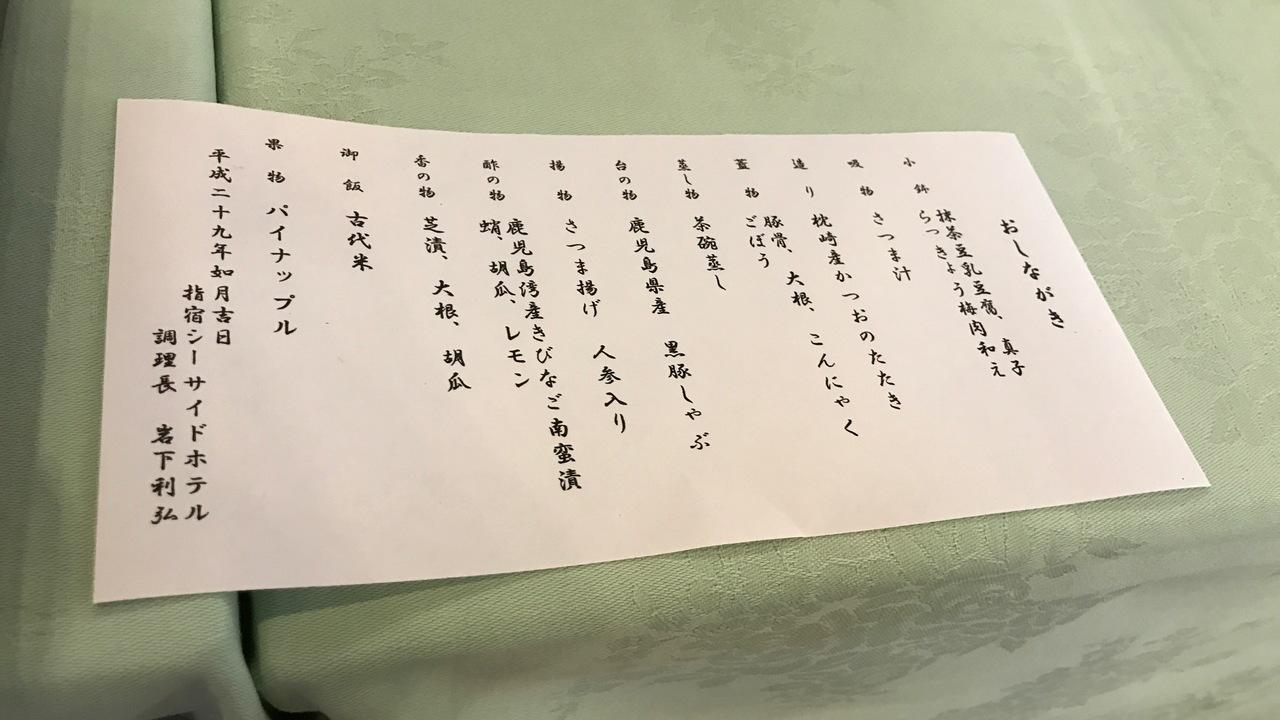 おしながき
小鉢 抹茶豆乳豆腐、真子
らっきょう梅肉和え
吸物 さつま汁
造り 枕崎産かつおのたたき
蓋物 豚骨、大根、こんにゃく
ごぼう
蒸し物 茶碗蒸し
台の物 鹿児島県産 黒豚しゃぶ
揚物 さつま揚げ 人参入り
酢の物 鹿児島湾産きびなご南蛮漬
蛸、胡瓜、レモン
香の物 芝漬、大根、胡瓜
御飯 古代米
果物 パイナップル
平成二十九年如月吉日
指宿シーサイドホテル
調理長 岩下利弘